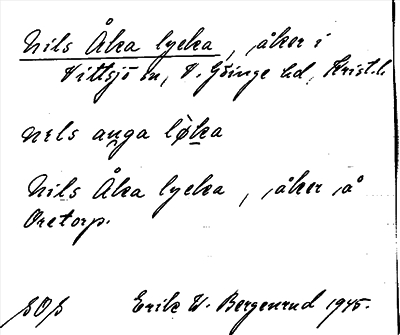 Nils Åka lycka, åker i
Vittsjö sn, V. Göinge hd, Krist. l.
nɛls aŋga løka
Nils Åka lycka, åker å
Oretorp.
Erik W. Bergenrud 1945.